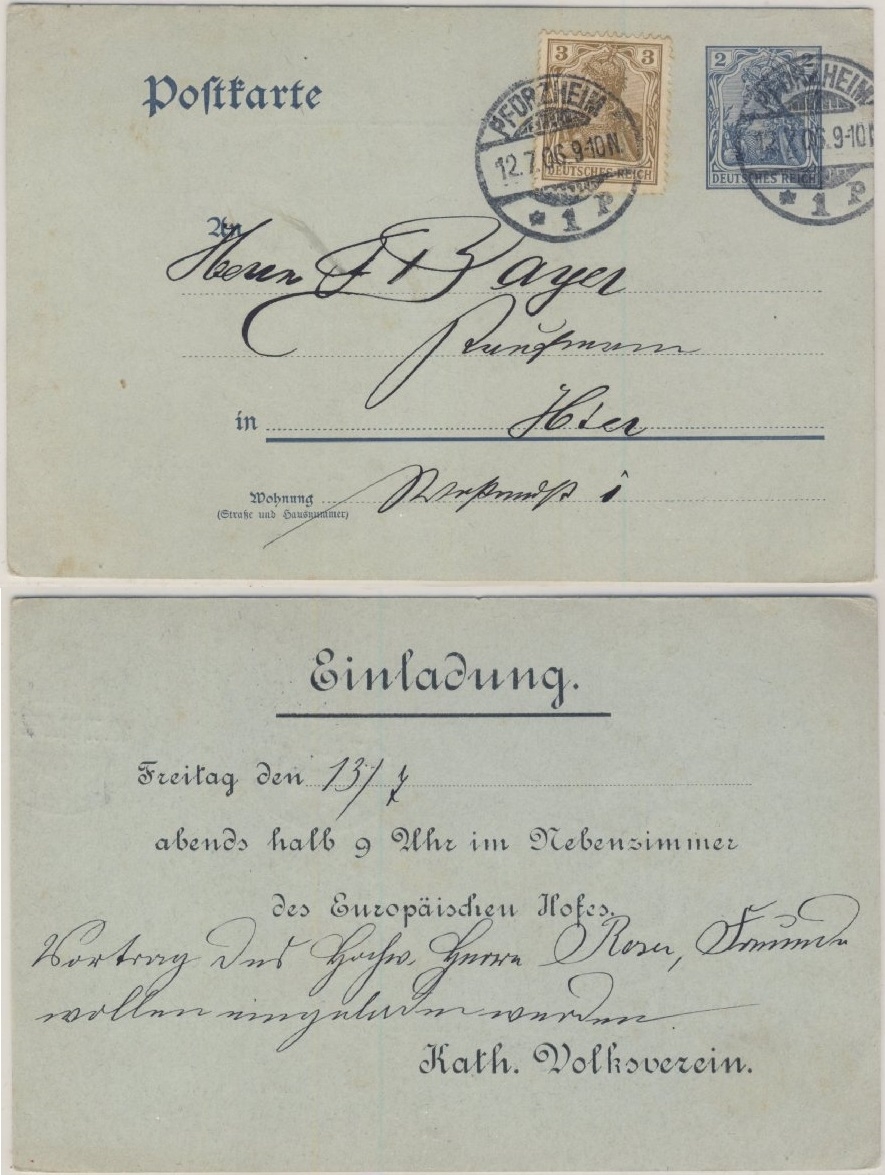 Postkarte
3 3
DEUTSCHES REICH
PFORZHEIM
12.7.06. 9-10 N.
* 1 P
2 2
DEUTSCHES REICH
PFORZHEIM
12.7.06. 9-10 N
* 1 P
An
Herrn F X Bayer
Kaufmann
in Hier
Wohnung
(Straße und Hausnummer)
Einladung.
Freitag den 13/7
abends halb 9 Uhr im Nebenzimmer
des Europäischen Hofes.
Vortrag des Hochw. Herrn Roser, Freunde
wollen eingeladen werden
Kath. Volksverein.